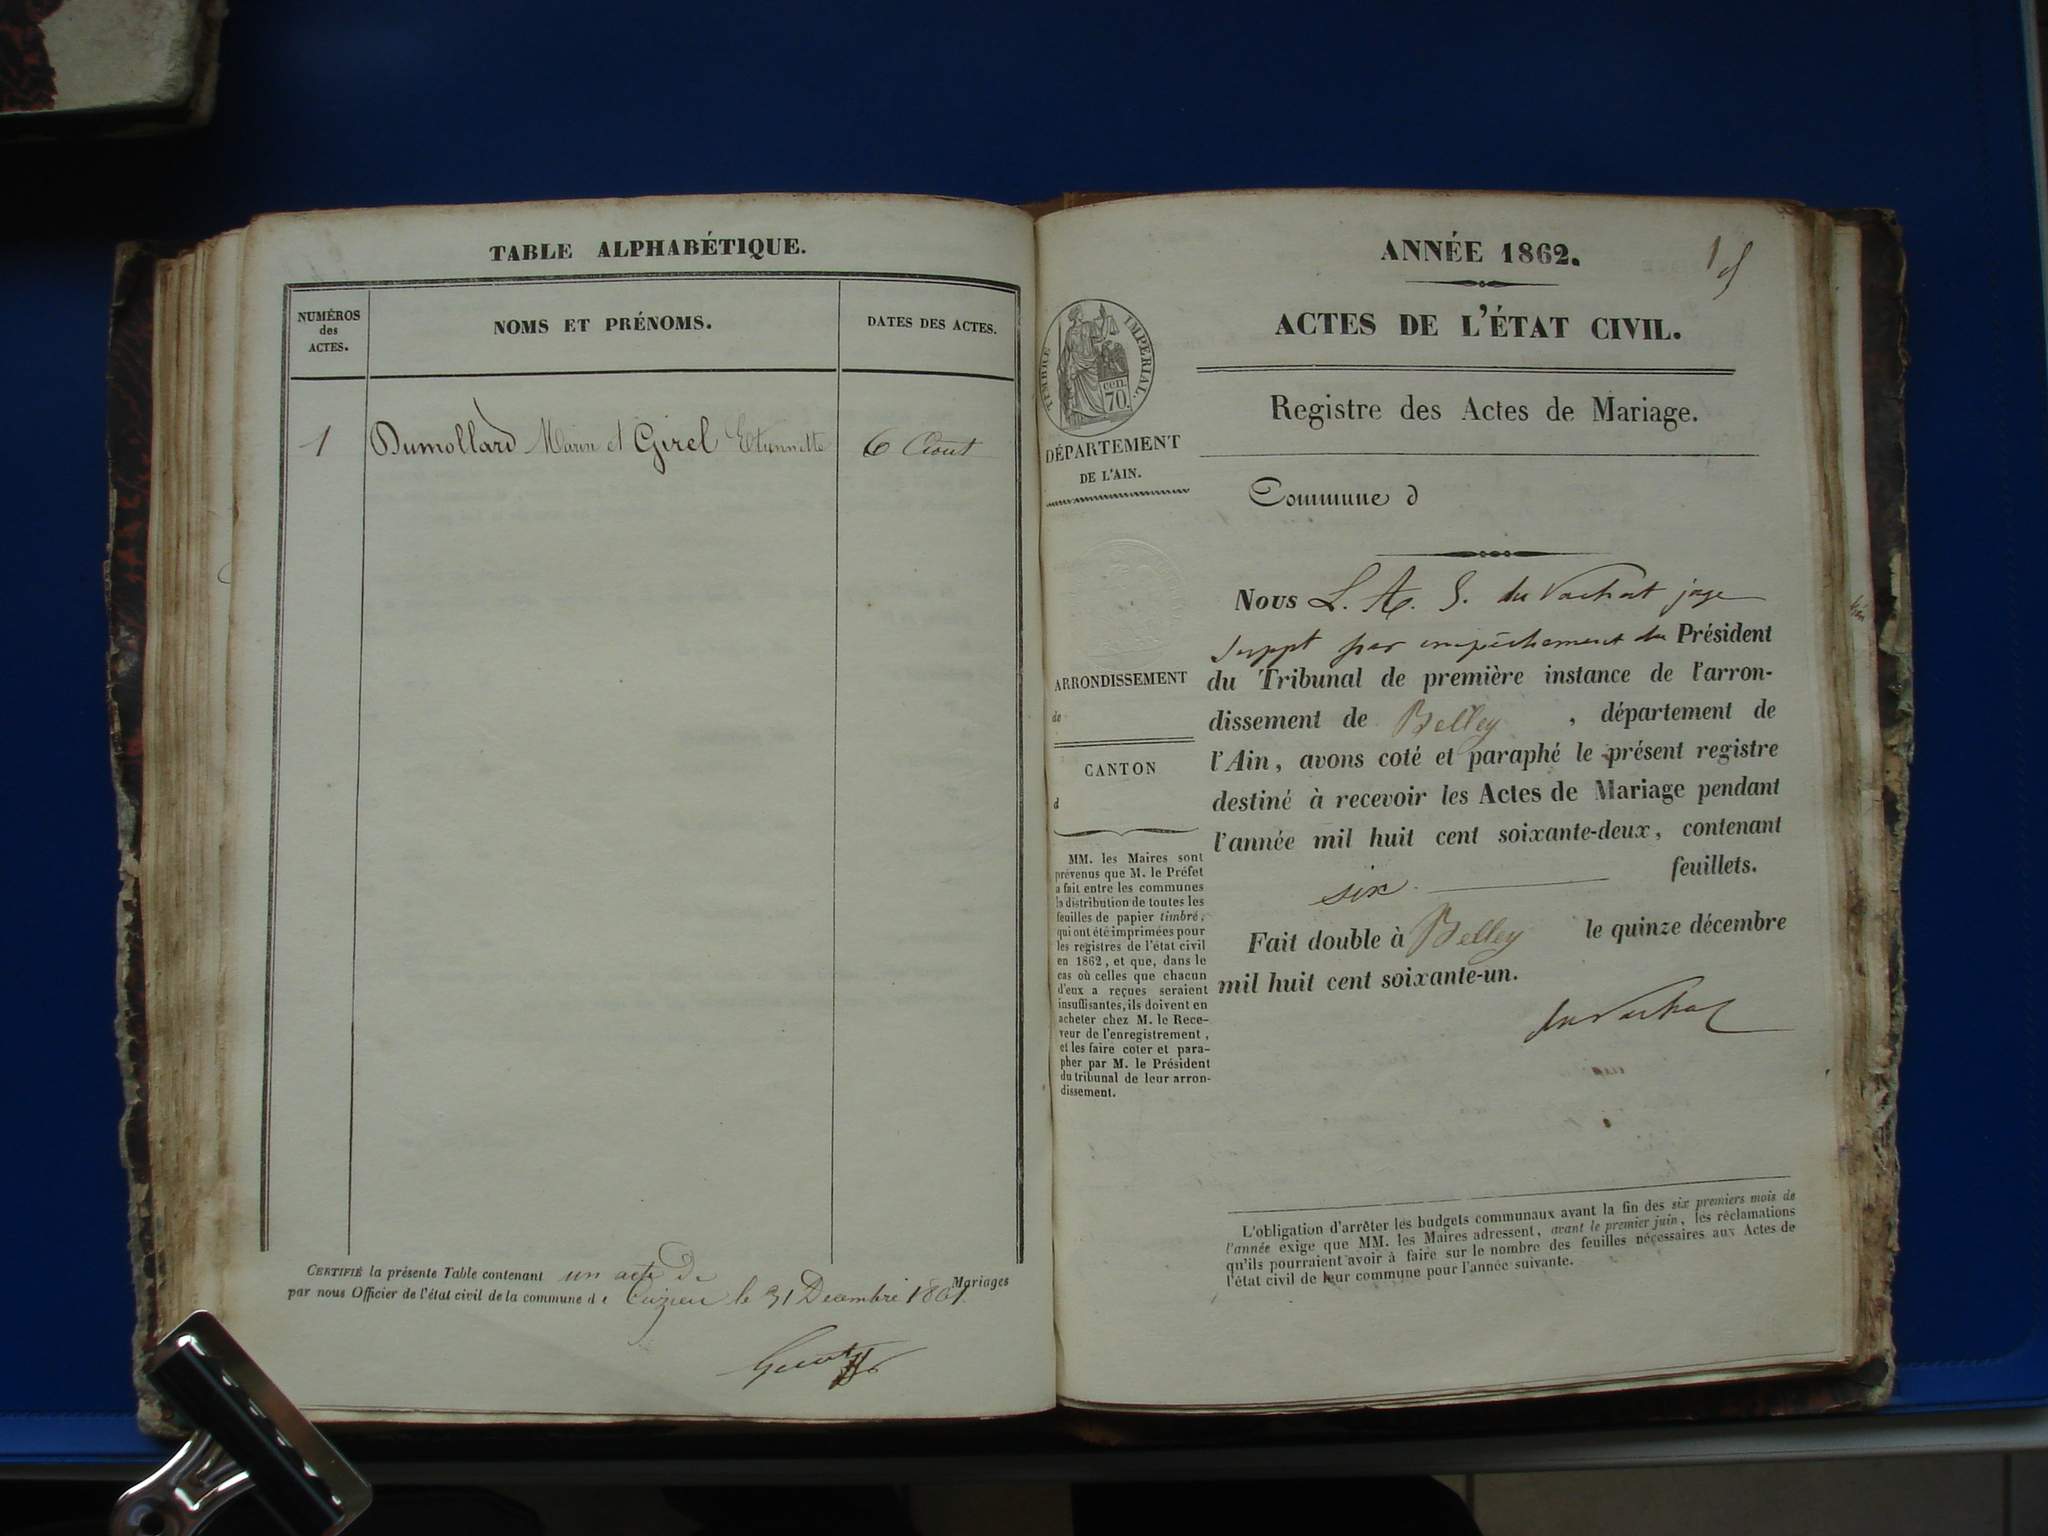 TABLE ALPHABÉTIQUE.
NUMÉROS
des
ACTES.
NOMS ET PRÉNOMS.
DATES DES ACTES.
1 Dumollard Marin et Girel Etiennette 6 Aout
CERTIFIÉ la présente Table contenant un acte de Mariages
par nous Officier de l'état civil de la commune de Cuzieu le 31 Decembre 1861
ANNÉE 1862.
1
ACTES DE L'ÉTAT CIVIL.
Registre des Actes de Mariage.
TIMBRE IMPÉRIAL.
cen.
70.
DÉPARTEMENT
DE L'AIN.
Commune d
ARRONDISSEMENT
de
CANTON
d
MM. les Maires sont
prévenus que M. le Préfet
a fait entre les communes
la distribution de toutes les
feuilles de papier timbré,
qui ont été imprimées pour
les registres de l'état civil
en 1862, et que, dans le
cas où celles que chacun
d'eux a reçues seraient
insuffisantes, ils doivent en
acheter chez M. le Rece-
veur de l'enregistrement,
et les faire coter et para-
pher par M. le Président
du tribunal de leur arron-
dissement.
Nous L. A. S. du Vachat juge
suppt par empêchement du Président
du Tribunal de première instance de l'arron-
dissement de Belley, département de
l'Ain, avons coté et paraphé le présent registre
destiné à recevoir les Actes de Mariage pendant
l'année mil huit cent soixante-deux, contenant
six feuillets.
Fait double à Belley le quinze décembre
mil huit cent soixante-un.
du Vachat
L'obligation d'arrêter les budgets communaux avant la fin des six premiers mois de
l'année exige que MM. les Maires adressent, avant le premier juin, les réclamations
qu'ils pourraient avoir à faire sur le nombre des feuilles nécessaires aux Actes de
l'état civil de leur commune pour l'année suivante.